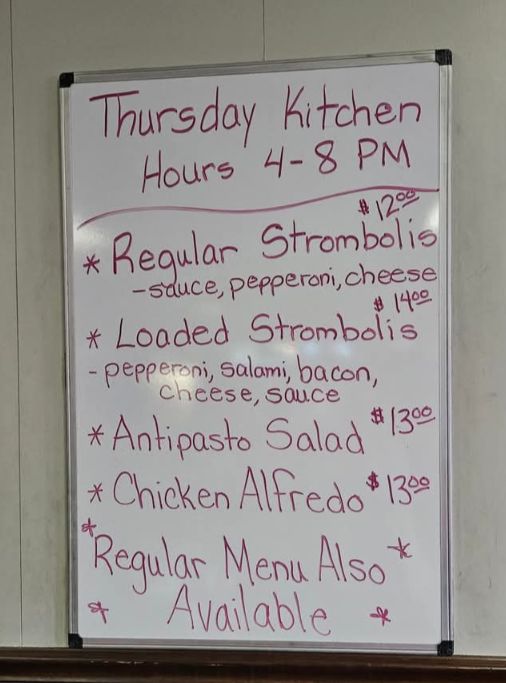 Thursday Kitchen
Hours 4-8 PM
$12.00
* Regular Strombolis
-sauce, pepperoni, cheese
$14.00
* Loaded Strombolis
- pepperoni, salami, bacon,
cheese, sauce
* Antipasto Salad $13.00
* Chicken Alfredo $13.00
* Regular Menu Also *
* Available *